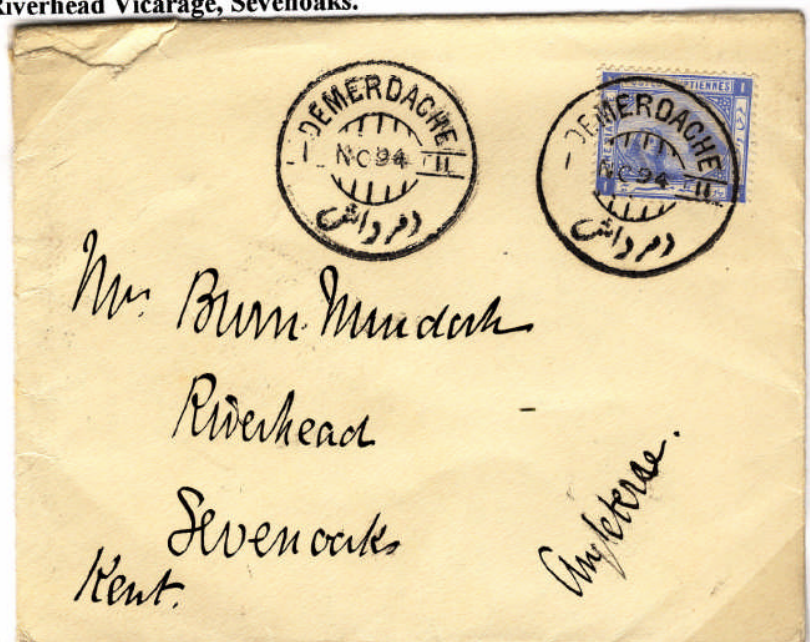 Riverhead Vicarage, Sevenoaks.
DEMERDACHE
NO 94 II
دمرداش
POSTES EGYPTIENNES
DEMERDACHE
NO 94 II
دمرداش
Mrs. Burn Murdoch
Riverhead
Sevenoaks
Kent.
Angleterre.